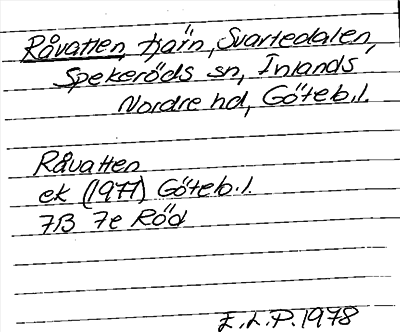 Råvatten, tjärn, Svartedalen,
Spekeröds sn, Inlands
Nordre hd, Göteb.l.
Råvatten
ek (1977) Göteb.l.
7B 7e Röd
E.L.P. 1978